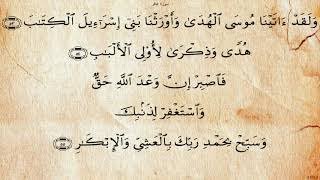 وَلَقَدْ ءَاتَيْنَا مُوسَى ٱلْهُدَىٰ وَأَوْرَثْنَا بَنِىٓ إِسْرَٰٓءِيلَ ٱلْكِتَٰبَ ۝٥٣
هُدًى وَذِكْرَىٰ لِأُو۟لِى ٱلْأَلْبَٰبِ ۝٥٤
فَٱصْبِرْ إِنَّ وَعْدَ ٱللَّهِ حَقٌّ
وَٱسْتَغْفِرْ لِذَنۢبِكَ
وَسَبِّحْ بِحَمْدِ رَبِّكَ بِٱلْعَشِىِّ وَٱلْإِبْكَٰرِ ۝٥٥